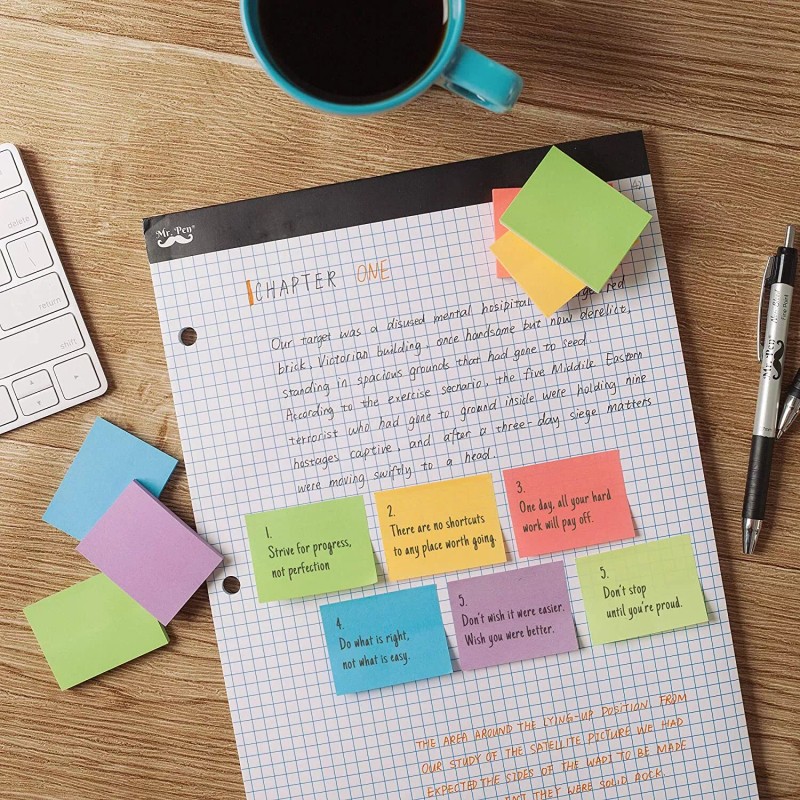 delete
return
shift
Mr. Pen
CHAPTER ONE
Our target was a disused mental hosipital red
brick, Victorian building, once handsome but now derelict,
standing in spacious grounds that had gone to seed.
According to the exercise scenario, the five Middle Eastern
terrorist who had gone to ground inside were holding nine
hostages captive, and after a three-day siege matters
were moving swiftly to a head.
1.
Strive for progress,
not perfection
2.
There are no shortcuts
to any place worth going.
3.
One day, all your hard
work will pay off.
4.
Do what is right,
not what is easy.
5.
Don't wish it were easier.
Wish you were better.
5.
Don't stop
until you're proud.
THE AREA AROUND THE LYING-UP POSITION. FROM
OUR STUDY OF THE SATELLITE PICTURE WE HAD
EXPECTED THE SIDES OF THE WADI TO BE MADE
THEY WERE SOLID ROCK.
Mr. Pen